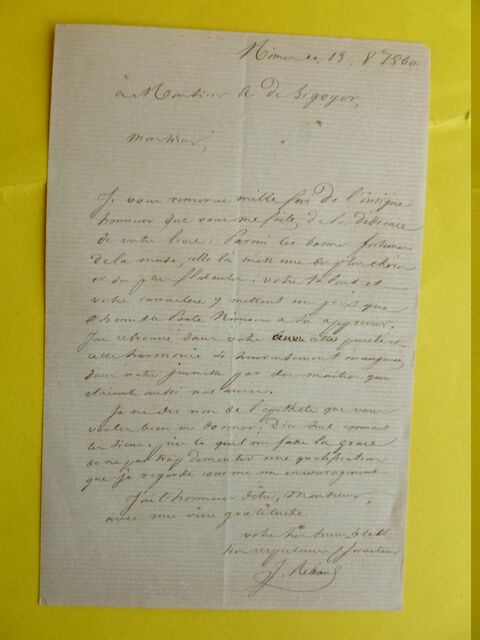 Nîmes ce 13. 8bre 1860
à Monsieur A de Sigoyer,
Monsieur,
Je vous remercie mille fois de l'insigne
honneur que vous me faites de la dédicace
de votre livre. Parmi les bonnes fortunes
de la muse, celle là m'est une des plus chères
et des plus flatteuses. votre talent et
votre caractère y mettent un prix que
l'humble Poète Nîmois a su apprécier.
J'ai retrouvé dans votre cette pureté et
cette harmonie
dans notre jeunesse par des maîtres qui
étaient aussi nos amis.
Je ne dis rien de l'épithète que vous
voulez bien me donner; Dieu seul connait
les siens. priez le qu'il me fasse la grace
de ne pas trop démentir une qualification
que je regarde comme un encouragement
J'ai l'honneur d'être, Monsieur,
avec une vive gratitude
votre très humble et
très respectueux serviteur
J. Reboul